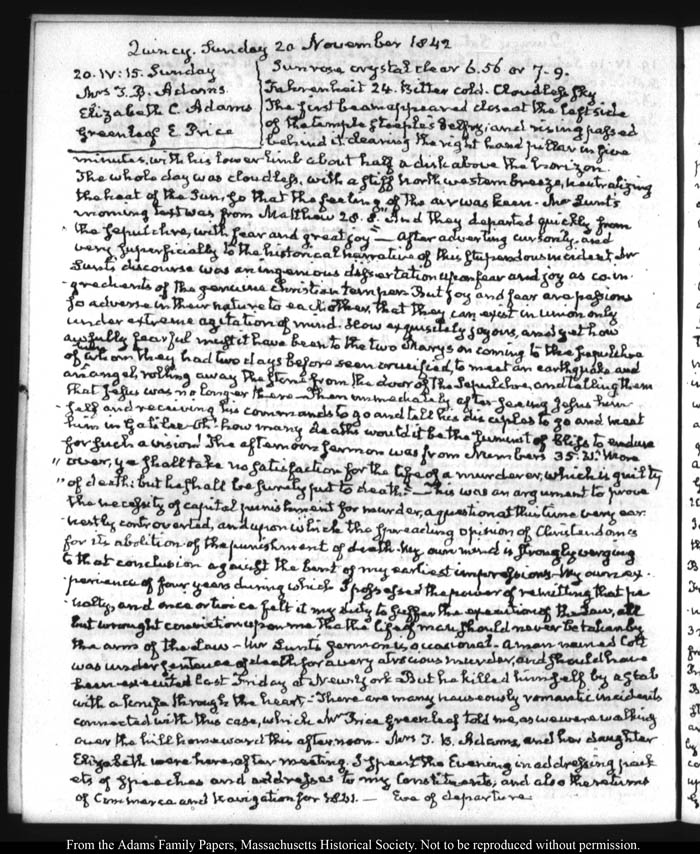 Quincy. Sunday 20 November 1842
20. IV: 15. Sunday
Mrs T. B. Adams
Elizabeth C. Adams
Greenleaf E. Price
Sun rose crystal clear 6.56 or 7-9.
Fahrenheit 24. Bitter cold. Cloudless sky
The first beam appeared close at the left side
of the temple steeple's belfry, and rising passed
behind it clearing the right hand pillar in five
minutes, with his lower limb about half a disk above the horizon.
The whole day was cloudless, with a stiff North western breeze, neutralizing
the heat of the Sun, so that the feeling of the air was keen. Mr Lunt's
morning text was from Matthew 28. 8. "And they departed quickly from
"the sepulchre, with fear and great joy" — After adverting cursorily and
very superficially to the historical narrative of this stupendous incident, Mr
Lunt's discourse was an ingenious dissertation upon fear and joy as co-in-
-gredients of the genuine Christian temper. But joy and fear are passions
so adverse in their nature to each other, that they can exist in union only
under extreme agitation of mind. How exquisitely joyous, and yet how
awfully fearful must it have been to the two Marys on coming to the sepulchre
of whom they had two days before seen crucified, to meet an earthquake and
an angel, rolling away the stone from the door of the Sepulchre, and telling them
that Jesus was no longer there — Then immediately after seeing Jesus him-
-self and receiving his commands to go and tell his disciples to go and meet
him in Galilee. Oh! how many deaths would it be the summit of bliss to endure
for such a vision! The afternoon sermon was from Numbers 35. 31. "More
"over, ye shall take no satisfaction for the life of a murderer, which is guilty
"of death: but he shall be surely put to death." — This was an argument to prove
the necessity of capital punishment for murder, a question at this time very ear-
nestly controverted, and upon which the spreading opinion of Christendom is
for the abolition of the punishment of death. My own mind is strongly verging
to that conclusion against the bent of my earliest impressions. My own ex-
-perience of four years during which I possessed the power of remitting that pe-
-nalty, and once or twice felt it my duty to suffer the execution of the Law, all
but wrought conviction upon me that the life of man should never be taken by
the arm of the Law — Mr Lunt's sermon is occasional. A man named Colt
was under sentence of death for a very atrocious murder, and should have
been executed last Friday at New York. But he killed himself by a stab
with a knife through the heart. There are many nauseously romantic incidents
connected with this case, which Mr Price Greenleaf told me, as we were walking
over the hill homeward this afternoon. Mrs T. B. Adams, and her daughter
Elizabeth were here, after meeting. I spent the Evening in addressing pack-
ets of speeches and addresses to my Constituents, and also the returns
of Commerce and Navigation for 1841. — Eve of departure
From the Adams Family Papers, Massachusetts Historical Society. Not to be reproduced without permission.